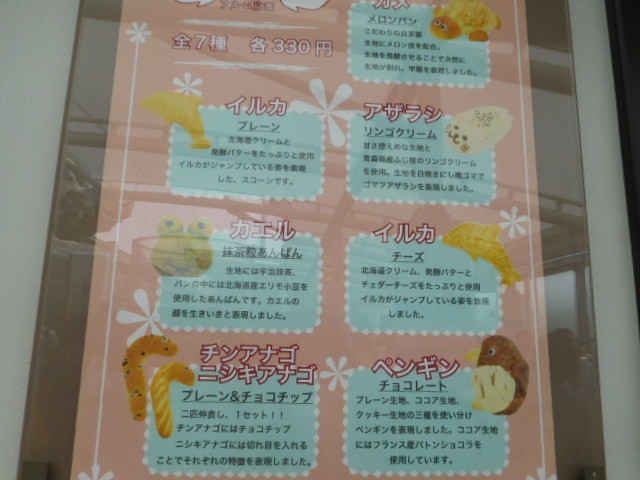 全7種 各330円
カメ
メロンパン
こだわりの自家製
生地にメロン皮を配合。
生地を発酵させることで自然に
生地が割れ、甲羅を表現しました。
イルカ
プレーン
北海道クリームと
発酵バターをたっぷりと使用
イルカがジャンプしている姿を表現
した、スコーンです。
アザラシ
リンゴクリーム
甘さ控えめな生地と
青森県産ふじ種のリンゴクリーム
を使用。生地を白焼きにし黒ゴマで
ゴマフアザラシを表現しました。
カエル
抹茶粒あんぱん
生地には宇治抹茶、
パンの中には北海道産エリモ小豆を
使用したあんぱんです。カエルの
顔を生きいきと表現しました。
イルカ
チーズ
北海道クリーム、発酵バターと
チェダーチーズをたっぷりと使用
イルカがジャンプしている姿を表現
しました。
チンアナゴ
ニシキアナゴ
プレーン&チョコチップ
二匹仲良し、1セット!!
チンアナゴにはチョコチップ
ニシキアナゴには切れ目を入れる
ことでそれぞれの特徴を表現しました。
ペンギン
チョコレート
プレーン生地、ココア生地、
クッキー生地の三種を使い分け
ペンギンを表現しました。ココア生地
にはフランス産バトンショコラを
使用しています。